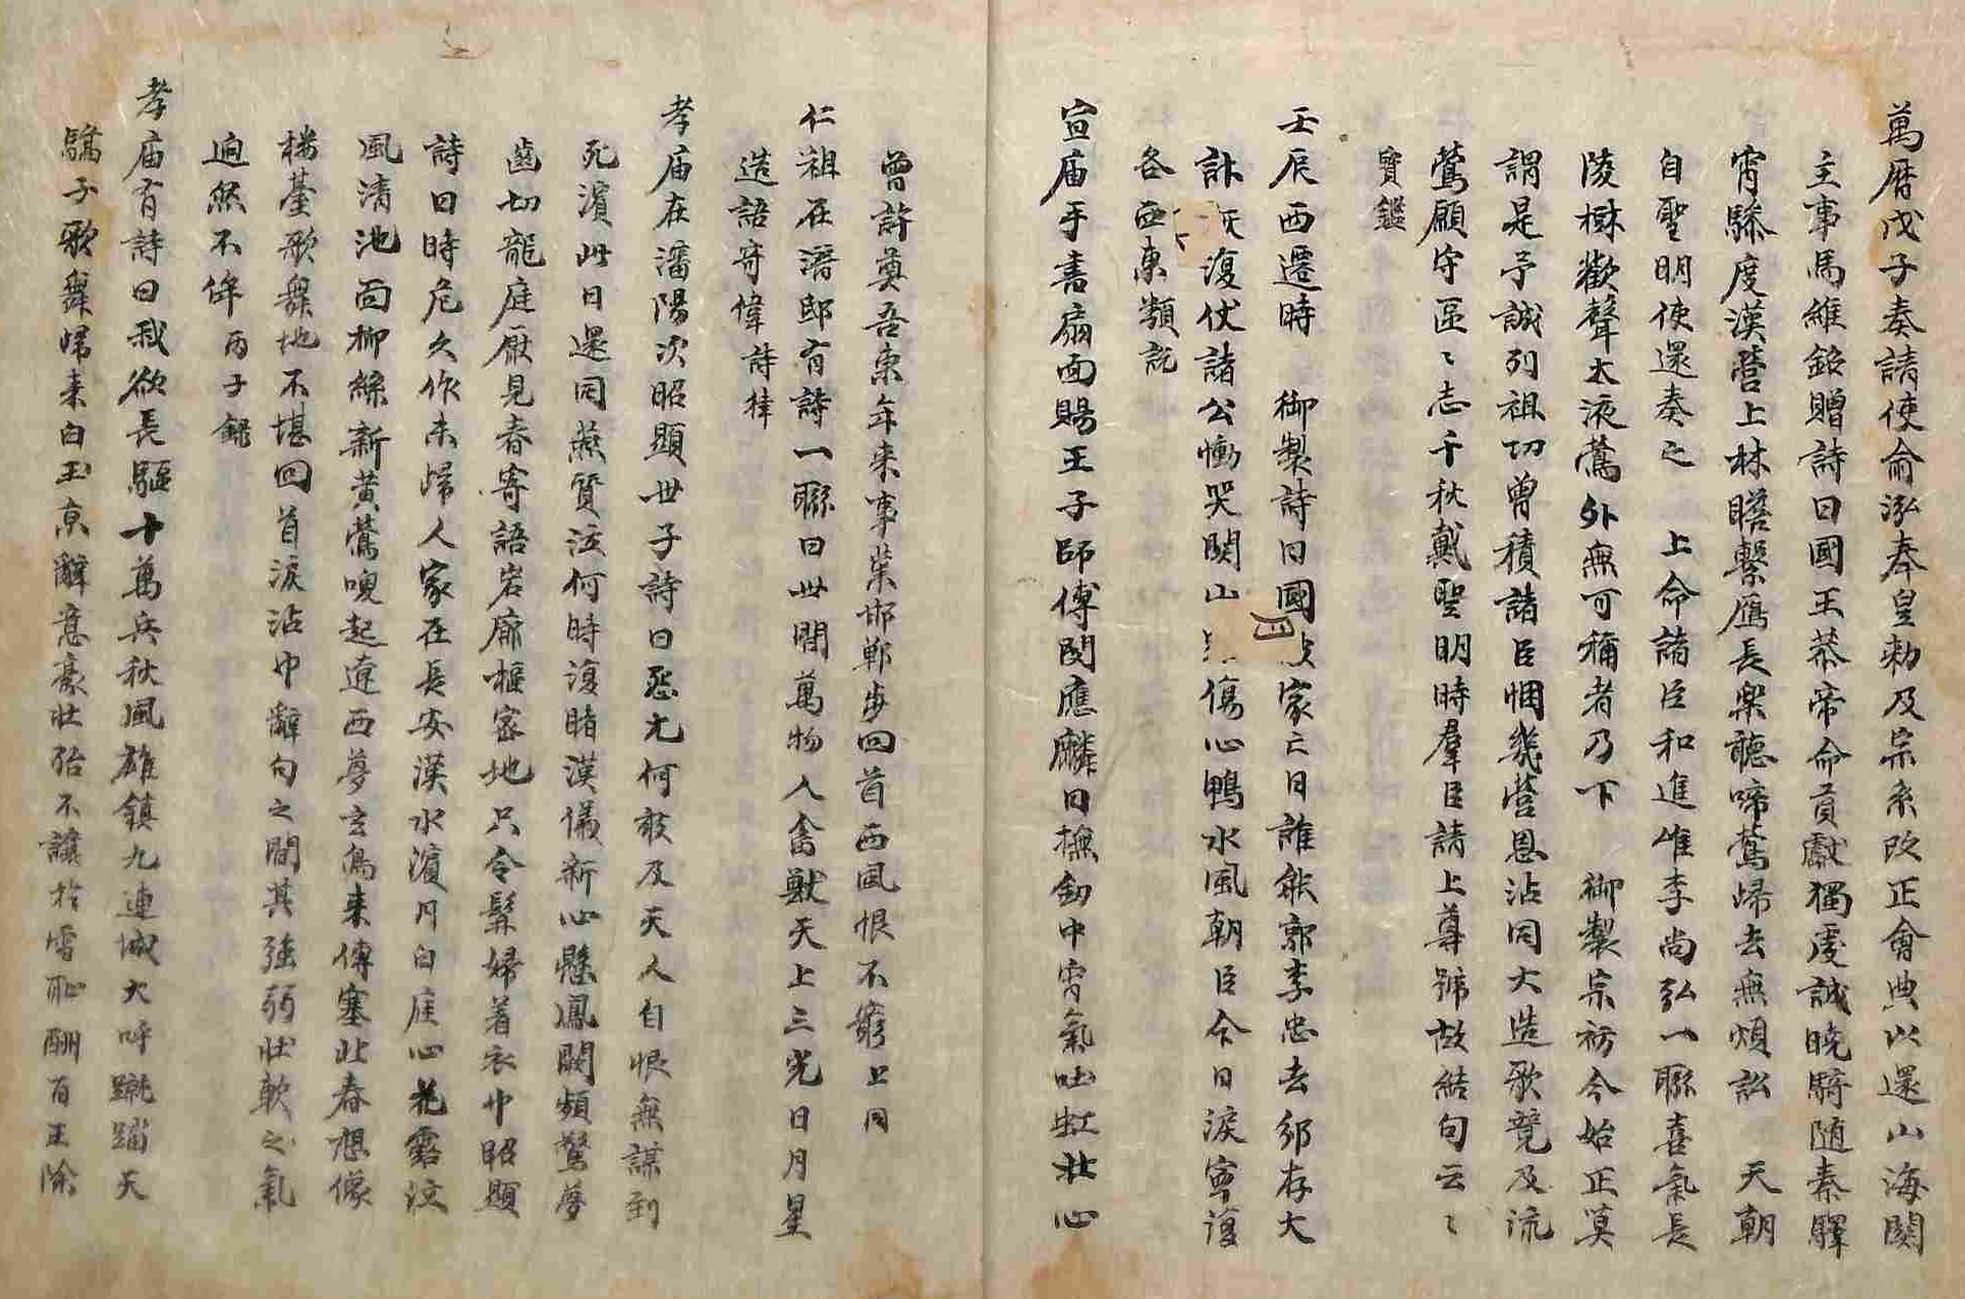 萬曆戊子奏請使兪泓奉皇勅及宗系改正會典以還山海関
主事馬維銘贈詩曰國王恭帝命貢獻獨虔誠曉騎随秦驛
宵驂度漢營上林瞻繫鴈長樂聴啼鶯歸去無煩訟 天朝
自聖明使還奏之 上命諸臣和進唯李尚弘一聯喜氣長
陵樹歡聲太液鶯外無可稱者乃下 御製宗祊今始正莫
謂是予誠列祖切曽積諸臣悃幾營恩沾同大造歌競及流
鶯願守區〻志千秋戴聖明時羣臣請上尊號故結句云〻
寳鑑
壬辰西遷時 御製詩曰國 家亡日誰能郭李忠去邠存大
計 復仗諸公慟哭関山月 傷心鴨水風朝臣今日後寧復
各西東類説
宣庙手書扇面賜王子師傅閔應麟曰撫釼中宵氣吐虹壮心
曽許奠吾東年来事業邯鄲步回首西風恨不窮上同
仁祖在潛邸有詩一聯曰世間萬物人禽獸天上三光日月星
造語奇偉詩榫
孝庙在瀋陽次昭顯世子詩曰怨尤何敢及天人自恨無謀到
死濱此日還同燕質泣何時復睹漢儀新心懸鳳闕頻驚夢
齒切龍庭厭見春寄語岩廊樞宻地只令髽婦着衣巾昭顯
詩曰時危久作未歸人家在長安漢水濱月白庭心花露泣
風清池面柳絲新黄鶯喚起遼西夢玄鳥来傳塞北春想像
樓臺歌舞地不堪回首淚沾巾辭句之間其強弱壮軟之氣
逈然不侔丙子錄
孝庙有詩曰我欲長驅十萬兵秋風雄鎮九連城大呼蹴踏天
驕子歌舞歸来白玉京辭意豪壮殆不讓於雪耻酬百王除